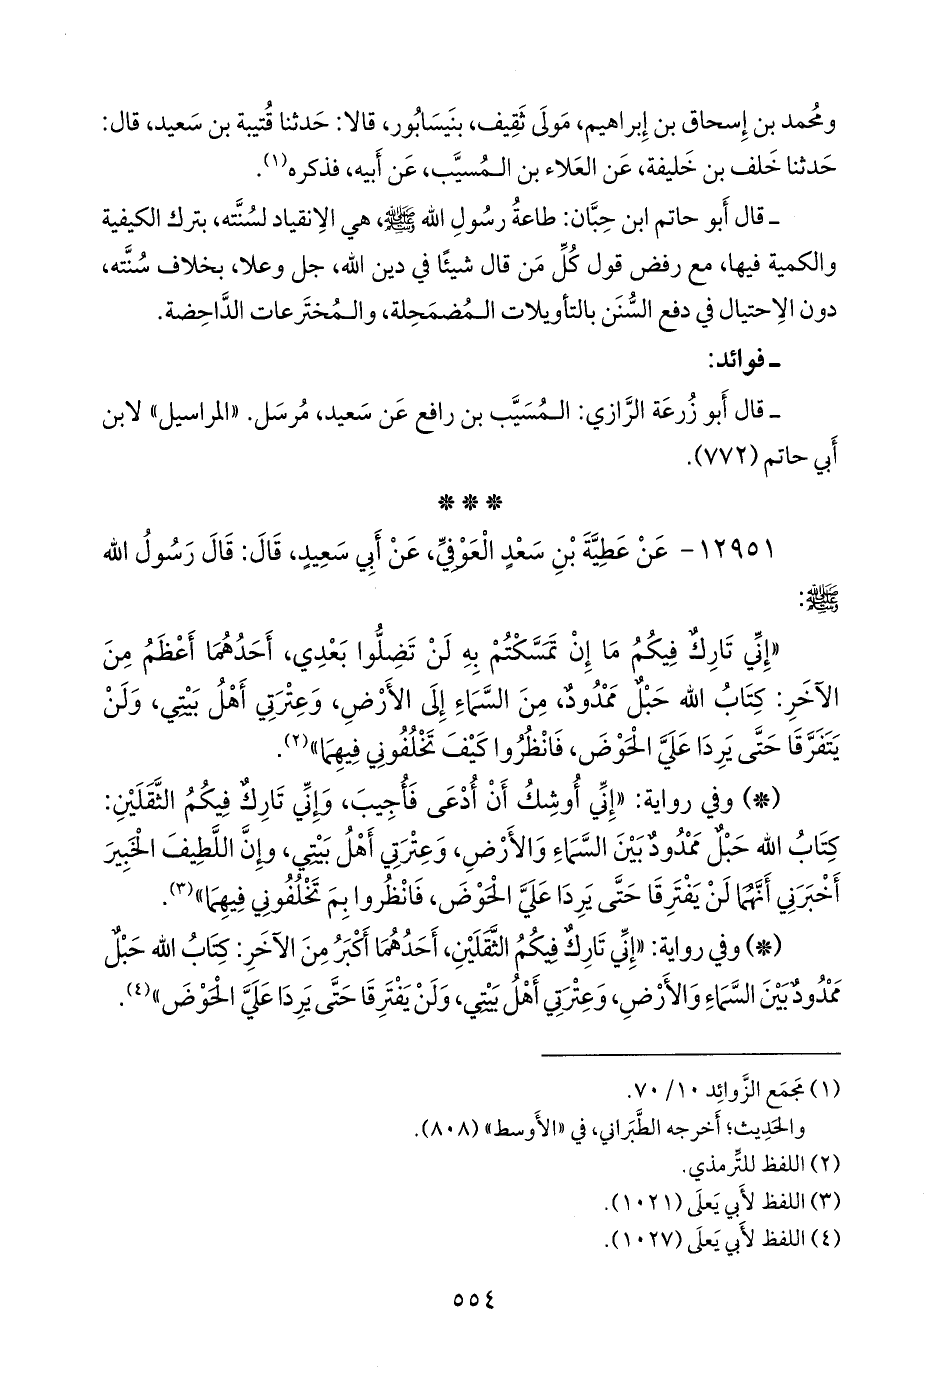 ومُحمد بن إِسحاق بن إِبراهيم، مَولَى ثَقِيف، بنَيسَابُور، قالا: حَدثنا قُتيبة بن سَعيد، قال:
حَدثنا خَلف بن خَليفة، عَن العَلاء بن المُسيَّب، عَن أَبيه، فذكره(١).
ـ قال أَبو حاتم ابن حِبَّان: طاعةُ رسُولِ الله ﷺ، هي الِانقياد لسُنَّته، بترك الكيفية
والكمية فيها، مع رفض قول كُلِّ مَن قال شيئًا في دين الله، جل وعلا، بخلاف سُنَّته،
دون الِاحتيال في دفع السُّنَن بالتأويلات المُضمَحِلة، والمُخترعات الدَّاحِضة.
ـ فوائد:
ـ قال أَبو زُرعَة الرَّازي: المُسَيَّب بن رافع عَن سَعيد، مُرسَل. «المراسيل» لابن
أَبي حاتم (٧٧٢).
* * *
١٢٩٥١- عَنْ عَطِيَّةَ بْنِ سَعْدٍ الْعَوْفِيِّ، عَنْ أَبِي سَعِيدٍ، قَالَ: قَالَ رَسُولُ الله
ﷺ:
«إِنِّي تَارِكٌ فِيكُمْ مَا إِنْ تَمَسَّكْتُمْ بِهِ لَنْ تَضِلُّوا بَعْدِي، أَحَدُهُمَا أَعْظَمُ مِنَ
الآخَرِ: كِتَابُ الله حَبْلٌ مَمْدُودٌ، مِنَ السَّمَاءِ إِلَى الأَرْضِ، وَعِتْرَتِي أَهْلُ بَيْتِي، وَلَنْ
يَتَفَرَّقَا حَتَّى يَرِدَا عَلَيَّ الْحَوْضَ، فَانْظُرُوا كَيْفَ تَخْلُفُونِي فِيهِمَا»(٢).
(*) وفي رواية: «إِنِّي أُوشِكُ أَنْ أُدْعَى فَأُجِيبَ، وَإِنِّي تَارِكٌ فِيكُمُ الثَّقَلَيْنِ:
كِتَابُ الله حَبْلٌ مَمْدُودٌ بَيْنَ السَّمَاءِ وَالأَرْضِ، وَعِتْرَتِي أَهْلُ بَيْتِي، وإِنَّ اللَّطِيفَ الْخَبِيرَ
أَخْبَرَنِي أَنَّهُمَا لَنْ يَفْتَرِقَا حَتَّى يَرِدَا عَلَيَّ الْحَوْضَ، فَانْظُرُوا بِمَ تَخْلُفُونِي فِيهِمَا»(٣).
(*) وفي رواية: «إِنِّي تَارِكٌ فِيكُمُ الثَّقَلَيْنِ، أَحَدُهُمَا أَكْبَرُ مِنَ الآخَرِ: كِتَابُ الله حَبْلٌ
مَمْدُودٌ بَيْنَ السَّمَاءِ وَالأَرْضِ، وَعِتْرَتِي أَهْلُ بَيْتِي، وَلَنْ يَفْتَرِقَا حَتَّى يَرِدَا عَلَيَّ الْحَوْضَ»(٤).
(١) مَجمَع الزَّوائِد ١٠/ ٧٠.
والحَدِيث؛ أَخرجه الطَّبَراني، في «الأَوسط» (٨٠٨).
(٢) اللفظ للتِّرمذي.
(٣) اللفظ لأَبي يَعلَى (١٠٢١).
(٤) اللفظ لأَبي يَعلَى (١٠٢٧).
٥٥٤